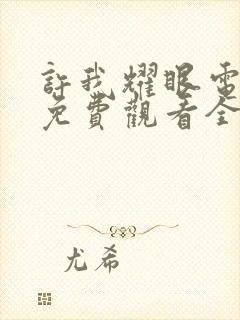 許我耀眼電
免費觀看全
尤希